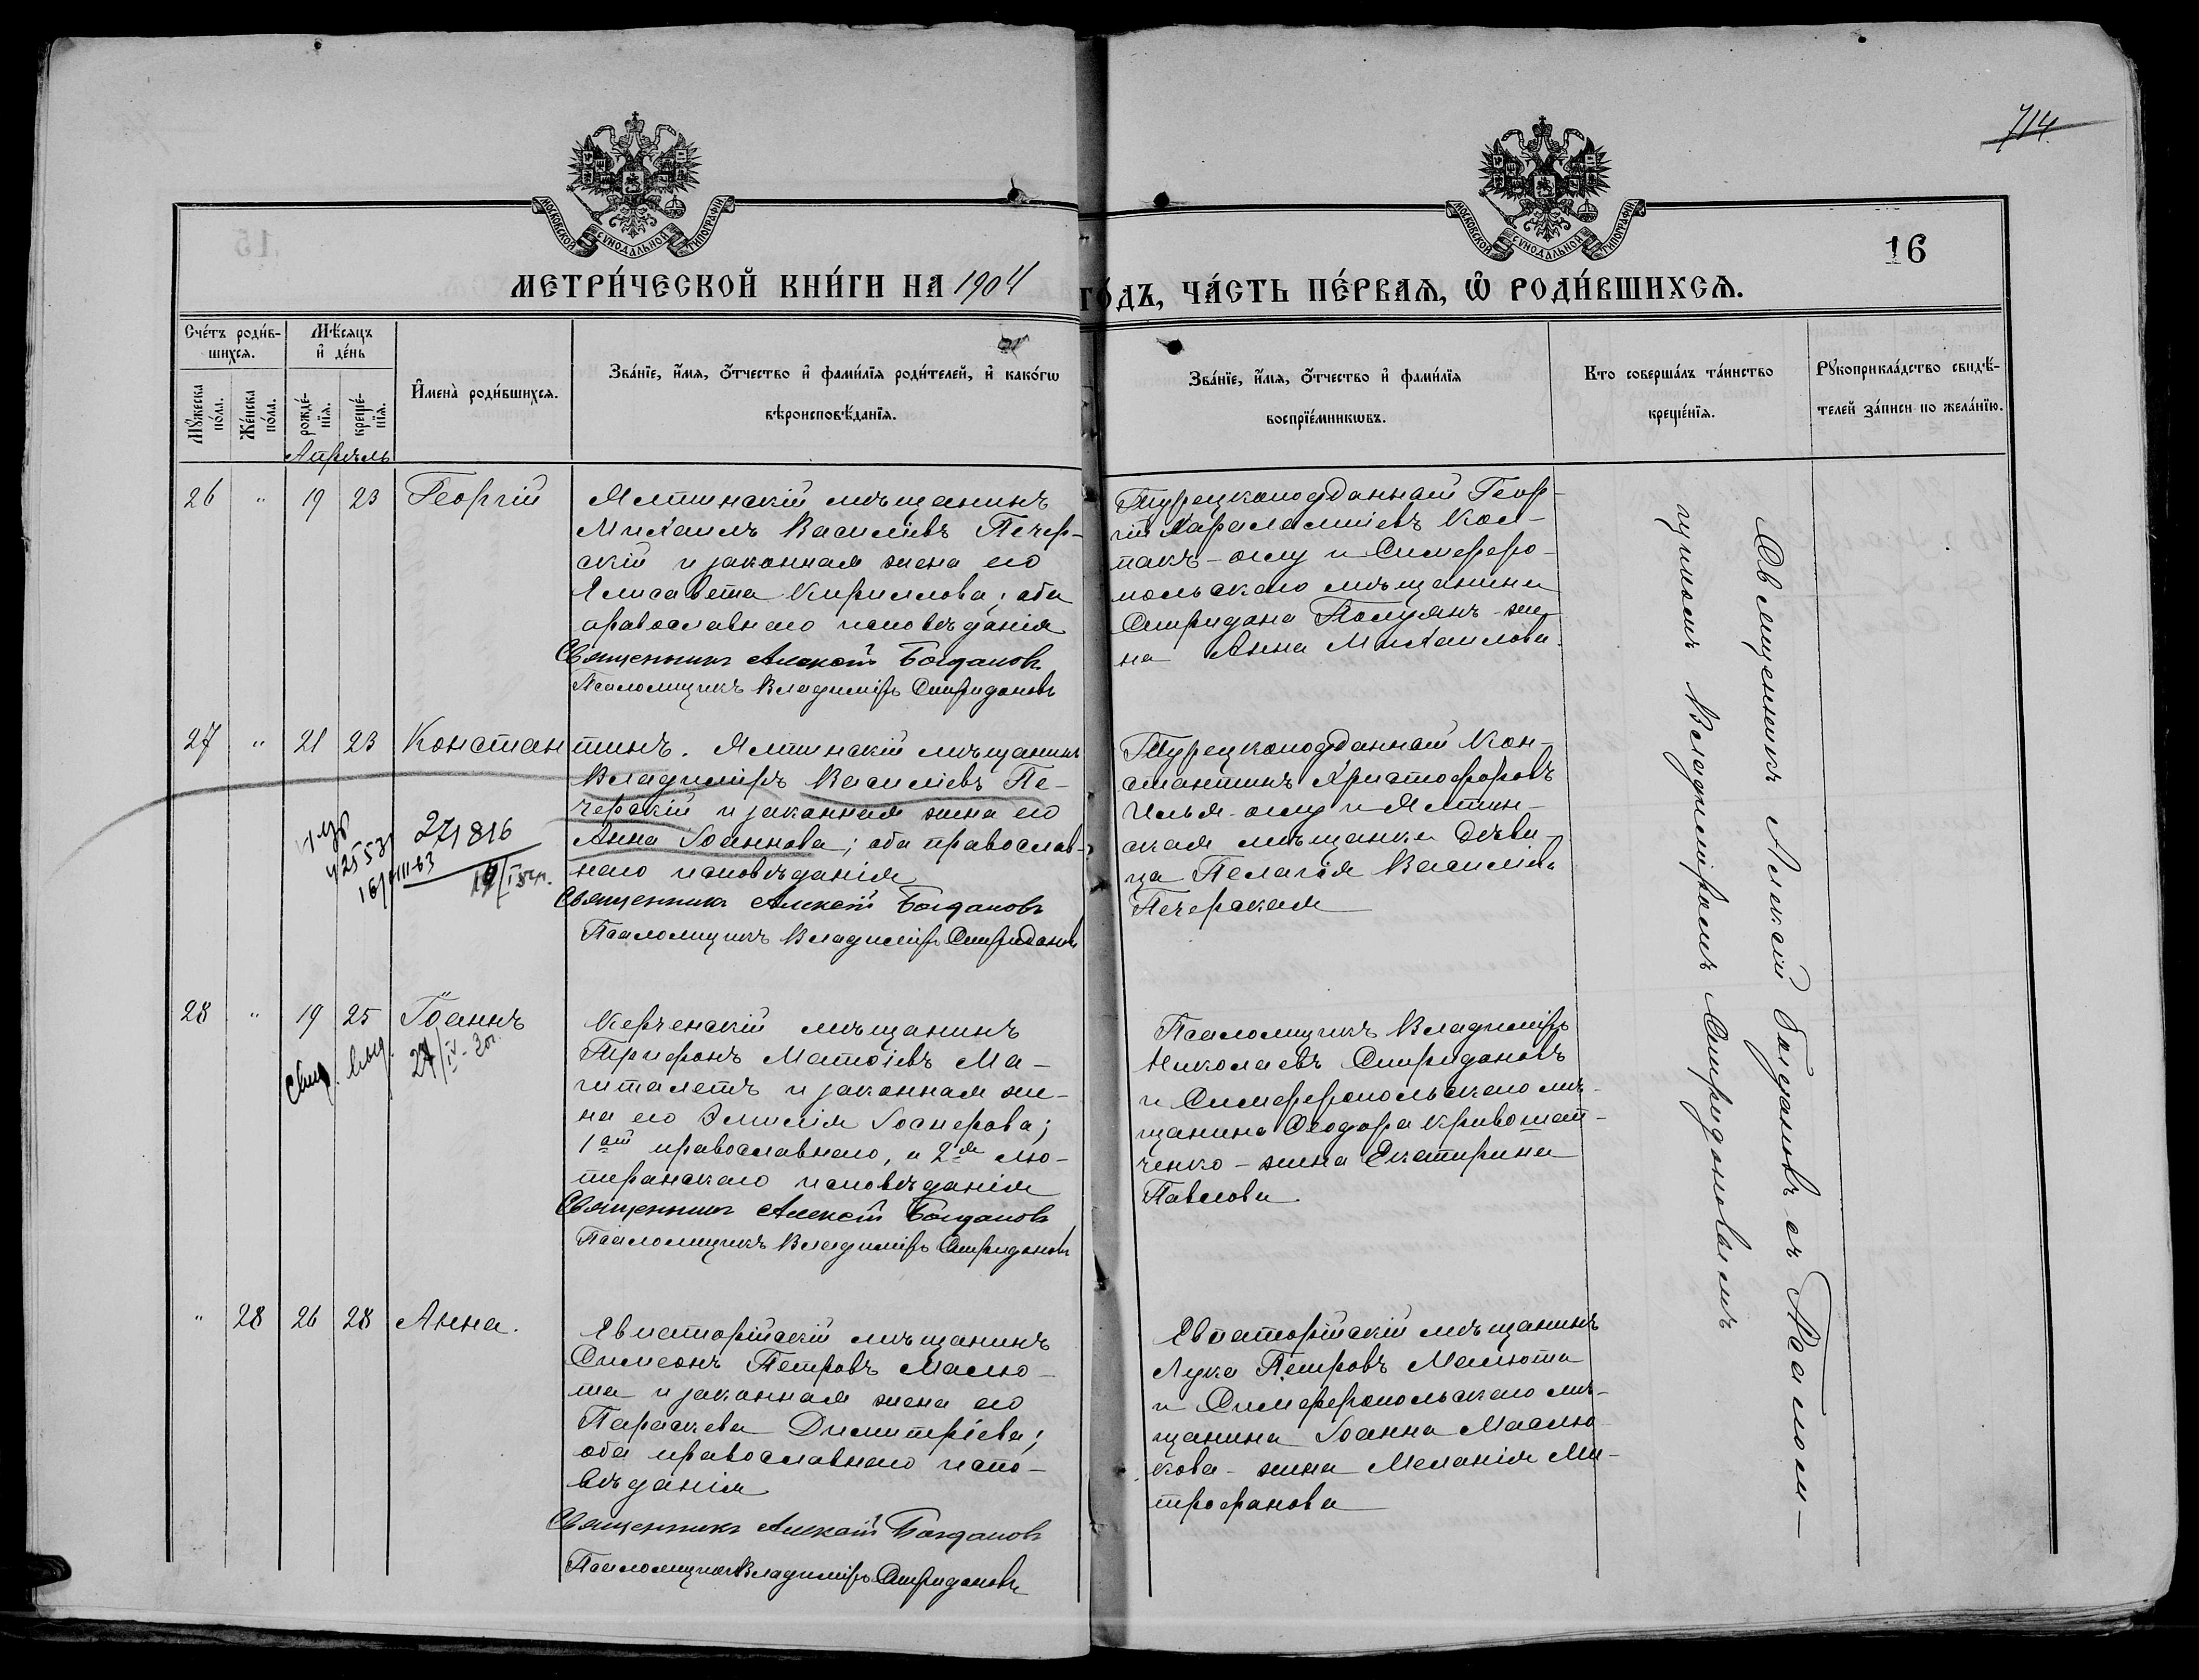 714
МОСКОВСКОЙ СѴНОДАЛЬНОЙ ТИПОГРАФІИ
МОСКОВСКОЙ СѴНОДАЛЬНОЙ ТИПОГРАФІИ
16
МЕТРИ́ЧЕСКОЙ КНИ́ГИ НА 1904
ГО́ДЪ, ЧА́СТЬ ПЕ́РВАѦ, Ѡ҆ РОДИ́ВШИХСѦ.
Сче́тъ роди́в-
шихсѧ.
Мꙋ́жеска по́ла.
Же́нска по́ла.
Мѣ́сѧцъ
и҆ де́нь
рожде́-
нїѧ.
креще́-
нїѧ.
Апрѣль
И҆мена̀ роди́вшихсѧ.
Зва́нїе, и҆́мѧ, ѻ҆́тчество и҆ фами́лїѧ роди́телей, и҆ како́гѡ
вѣроисповѣ́данїѧ.
Зва́нїе, и҆́мѧ, ѻ҆́тчество и҆ фами́лїѧ
воспрїе́мникѡвъ.
Кто соверша́лъ та́инство
креще́нїѧ.
Рꙋкоприкла́дство свидѣ́-
телей за́писи по жела́нїю.
26 " 19 23 Георгій
Ялтинскій мѣщанинъ
Михаилъ Василіевъ Печер-
скій и законная жена его
Елисавета Кириллова; оба
православнаго исповѣданія
Священникъ Алексій Богдановъ
Псаломщикъ Владиміръ Спиридоновъ
Турецкоподданный Геор-
гій Харалампіевъ Кол-
пакъ-оглу и Симферо-
польскаго мѣщанина
Спиридона Полуянъ-же-
на Анна Михаилова.
27 " 21 23 Константинъ.
Ялтинскій мѣщанинъ
Владиміръ Василіевъ Пе-
черскій и законная жена его
Анна Іоаннова; оба православ-
наго исповѣданія
Священникъ Алексій Богдановъ
Псаломщикъ Владиміръ Спиридоновъ
271816
Турецкоподданный Кон-
стантинъ Христофоровъ
Илья-оглу и Ялтин-
ская мѣщанка дѣви-
ца Пелагія Василіева
Печерская
28 " 19 25 Іоаннъ
27/IV-30г.
Керченскій мѣщанинъ
Трифонъ Матѳіевъ Ма-
гиталетъ и законная же-
на его Эмилія Іосперова;
1ый православнаго, а 2ая лю-
теранскаго исповѣданія
Священникъ Алексій Богдановъ
Псаломщикъ Владиміръ Спиридоновъ
Псаломщикъ Владиміръ
Николаевъ Спиридоновъ
и Симферопольскаго мѣ-
щанина Ѳеодора Кривошап-
ченко - жена Екатерина
Павлова
" 28 26 28 Анна.
Евпаторійскій мѣщанинъ
Симеонъ Петровъ Малю-
та и законная жена его
Параскева Димитріева;
оба православнаго испо-
вѣданія
Священникъ Алексій Богдановъ
Псаломщикъ Владиміръ Спиридоновъ
Евпаторійскій мѣщанинъ
Лука Петровъ Малюта
и Симферопольскаго мѣ-
щанина Іоанна Маслю-
кова - жена Меланія Ми-
трофанова
Священникъ Алексій Богдановъ съ Псалом-
щикомъ Владиміромъ Спиридоновымъ